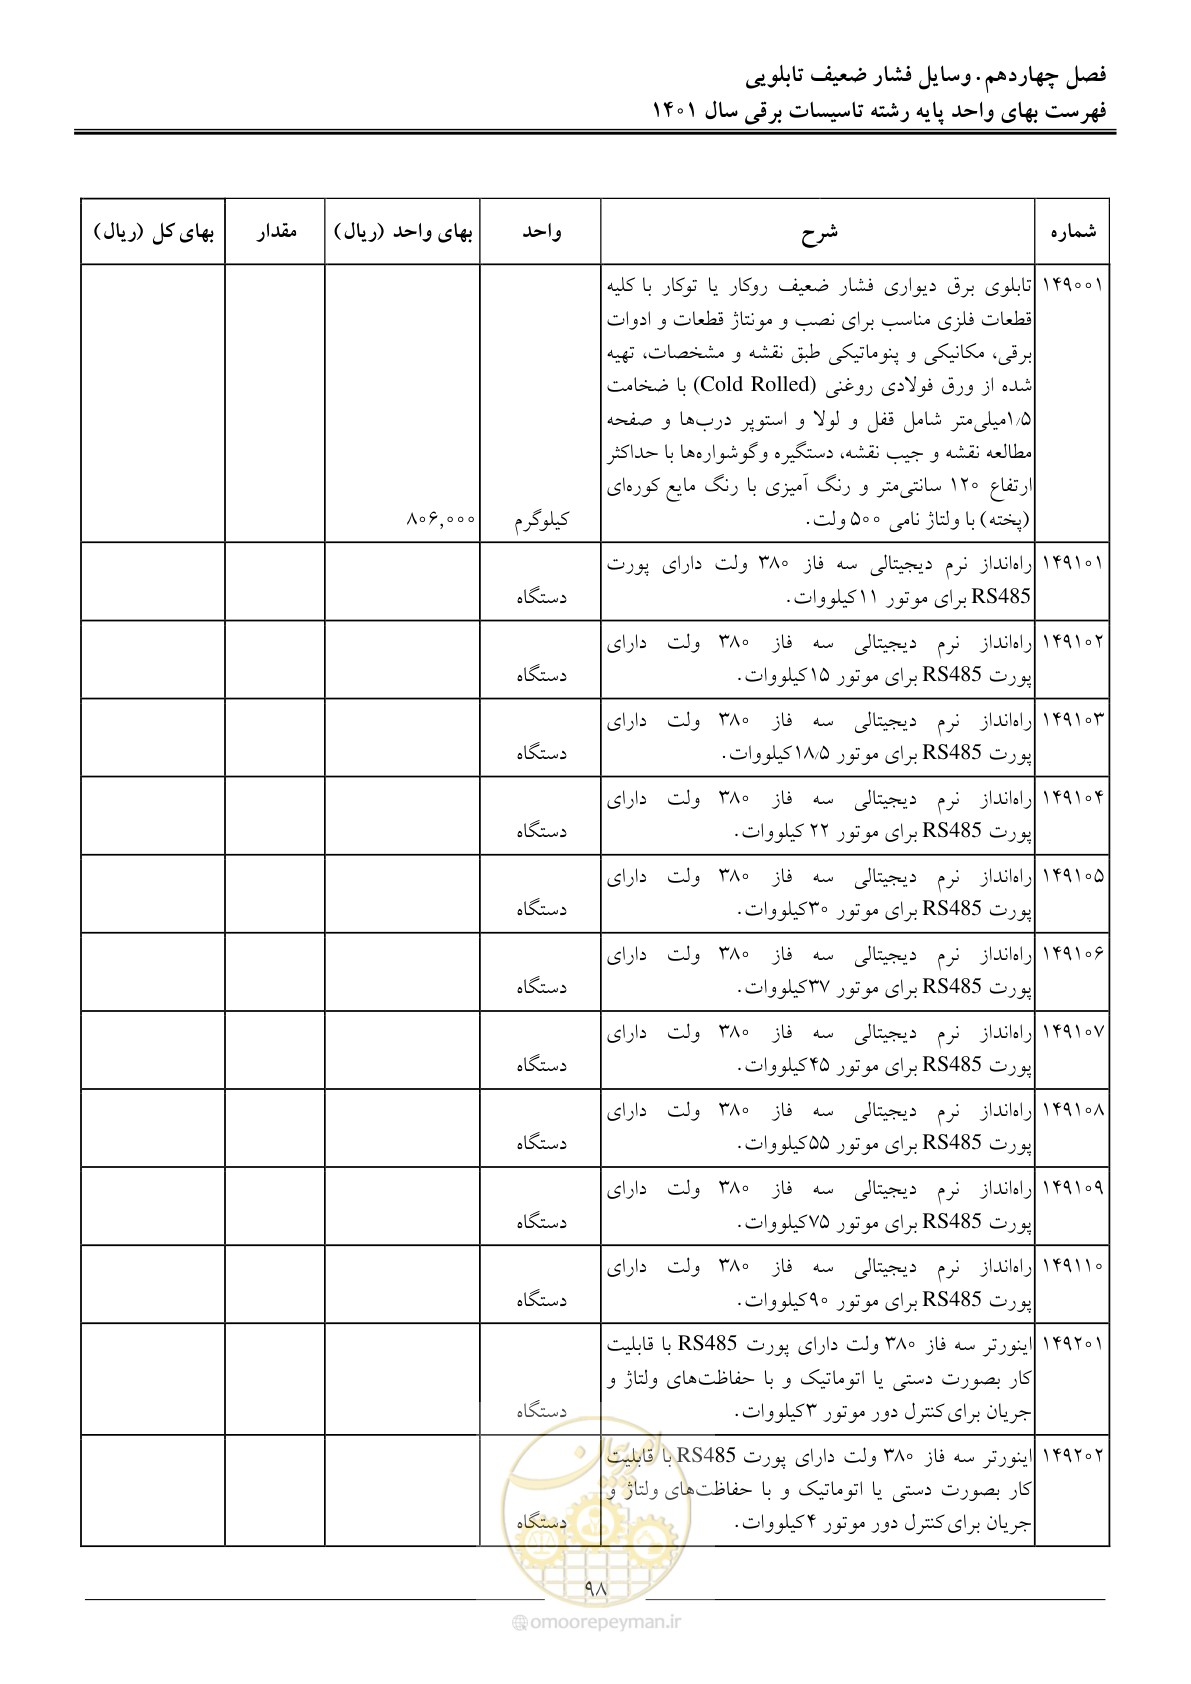 فصل چهاردهم. وسایل فشار ضعیف تابلویی
فهرست بهای واحد پایه رشته تاسیسات برقی سال ۱۴۰۱
شماره شرح واحد بهای واحد (ریال) مقدار بهای کل (ریال)
۱۴۹۰۰۱ تابلوی برق دیواری فشار ضعیف روکار یا توکار با کلیه
قطعات فلزی مناسب برای نصب و مونتاژ قطعات و ادوات
برقی، مکانیکی و پنوماتیکی طبق نقشه و مشخصات، تهیه
شده از ورق فولادی روغنی (Cold Rolled) با ضخامت
۱٫۵میلی‌متر شامل قفل و لولا و استوپر درب‌ها و صفحه
مطالعه نقشه و جیب نقشه، دستگیره وگوشواره‌ها با حداکثر
ارتفاع ۱۲۰ سانتی‌متر و رنگ آمیزی با رنگ مایع کوره‌ای
(پخته) با ولتاژ نامی ۵۰۰ ولت. کیلوگرم ۸۰۶,۰۰۰
۱۴۹۱۰۱ راه‌انداز نرم دیجیتالی سه فاز ۳۸۰ ولت دارای پورت
RS485 برای موتور ۱۱کیلووات. دستگاه
۱۴۹۱۰۲ راه‌انداز نرم دیجیتالی سه فاز ۳۸۰ ولت دارای
پورت RS485 برای موتور ۱۵کیلووات. دستگاه
۱۴۹۱۰۳ راه‌انداز نرم دیجیتالی سه فاز ۳۸۰ ولت دارای
پورت RS485 برای موتور ۱۸٫۵کیلووات. دستگاه
۱۴۹۱۰۴ راه‌انداز نرم دیجیتالی سه فاز ۳۸۰ ولت دارای
پورت RS485 برای موتور ۲۲ کیلووات. دستگاه
۱۴۹۱۰۵ راه‌انداز نرم دیجیتالی سه فاز ۳۸۰ ولت دارای
پورت RS485 برای موتور ۳۰کیلووات. دستگاه
۱۴۹۱۰۶ راه‌انداز نرم دیجیتالی سه فاز ۳۸۰ ولت دارای
پورت RS485 برای موتور ۳۷کیلووات. دستگاه
۱۴۹۱۰۷ راه‌انداز نرم دیجیتالی سه فاز ۳۸۰ ولت دارای
پورت RS485 برای موتور ۴۵کیلووات. دستگاه
۱۴۹۱۰۸ راه‌انداز نرم دیجیتالی سه فاز ۳۸۰ ولت دارای
پورت RS485 برای موتور ۵۵کیلووات. دستگاه
۱۴۹۱۰۹ راه‌انداز نرم دیجیتالی سه فاز ۳۸۰ ولت دارای
پورت RS485 برای موتور ۷۵کیلووات. دستگاه
۱۴۹۱۱۰ راه‌انداز نرم دیجیتالی سه فاز ۳۸۰ ولت دارای
پورت RS485 برای موتور ۹۰کیلووات. دستگاه
۱۴۹۲۰۱ اینورتر سه فاز ۳۸۰ ولت دارای پورت RS485 با قابلیت
کار بصورت دستی یا اتوماتیک و با حفاظت‌های ولتاژ و
جریان برای‌کنترل دور موتور ۳کیلووات. دستگاه
۱۴۹۲۰۲ اینورتر سه فاز ۳۸۰ ولت دارای پورت RS485 با قابلیت
کار بصورت دستی یا اتوماتیک و با حفاظت‌های ولتاژ و
جریان برای‌کنترل دور موتور ۴کیلووات. دستگاه
امور پیمان
۹۸
omoorepeyman.ir